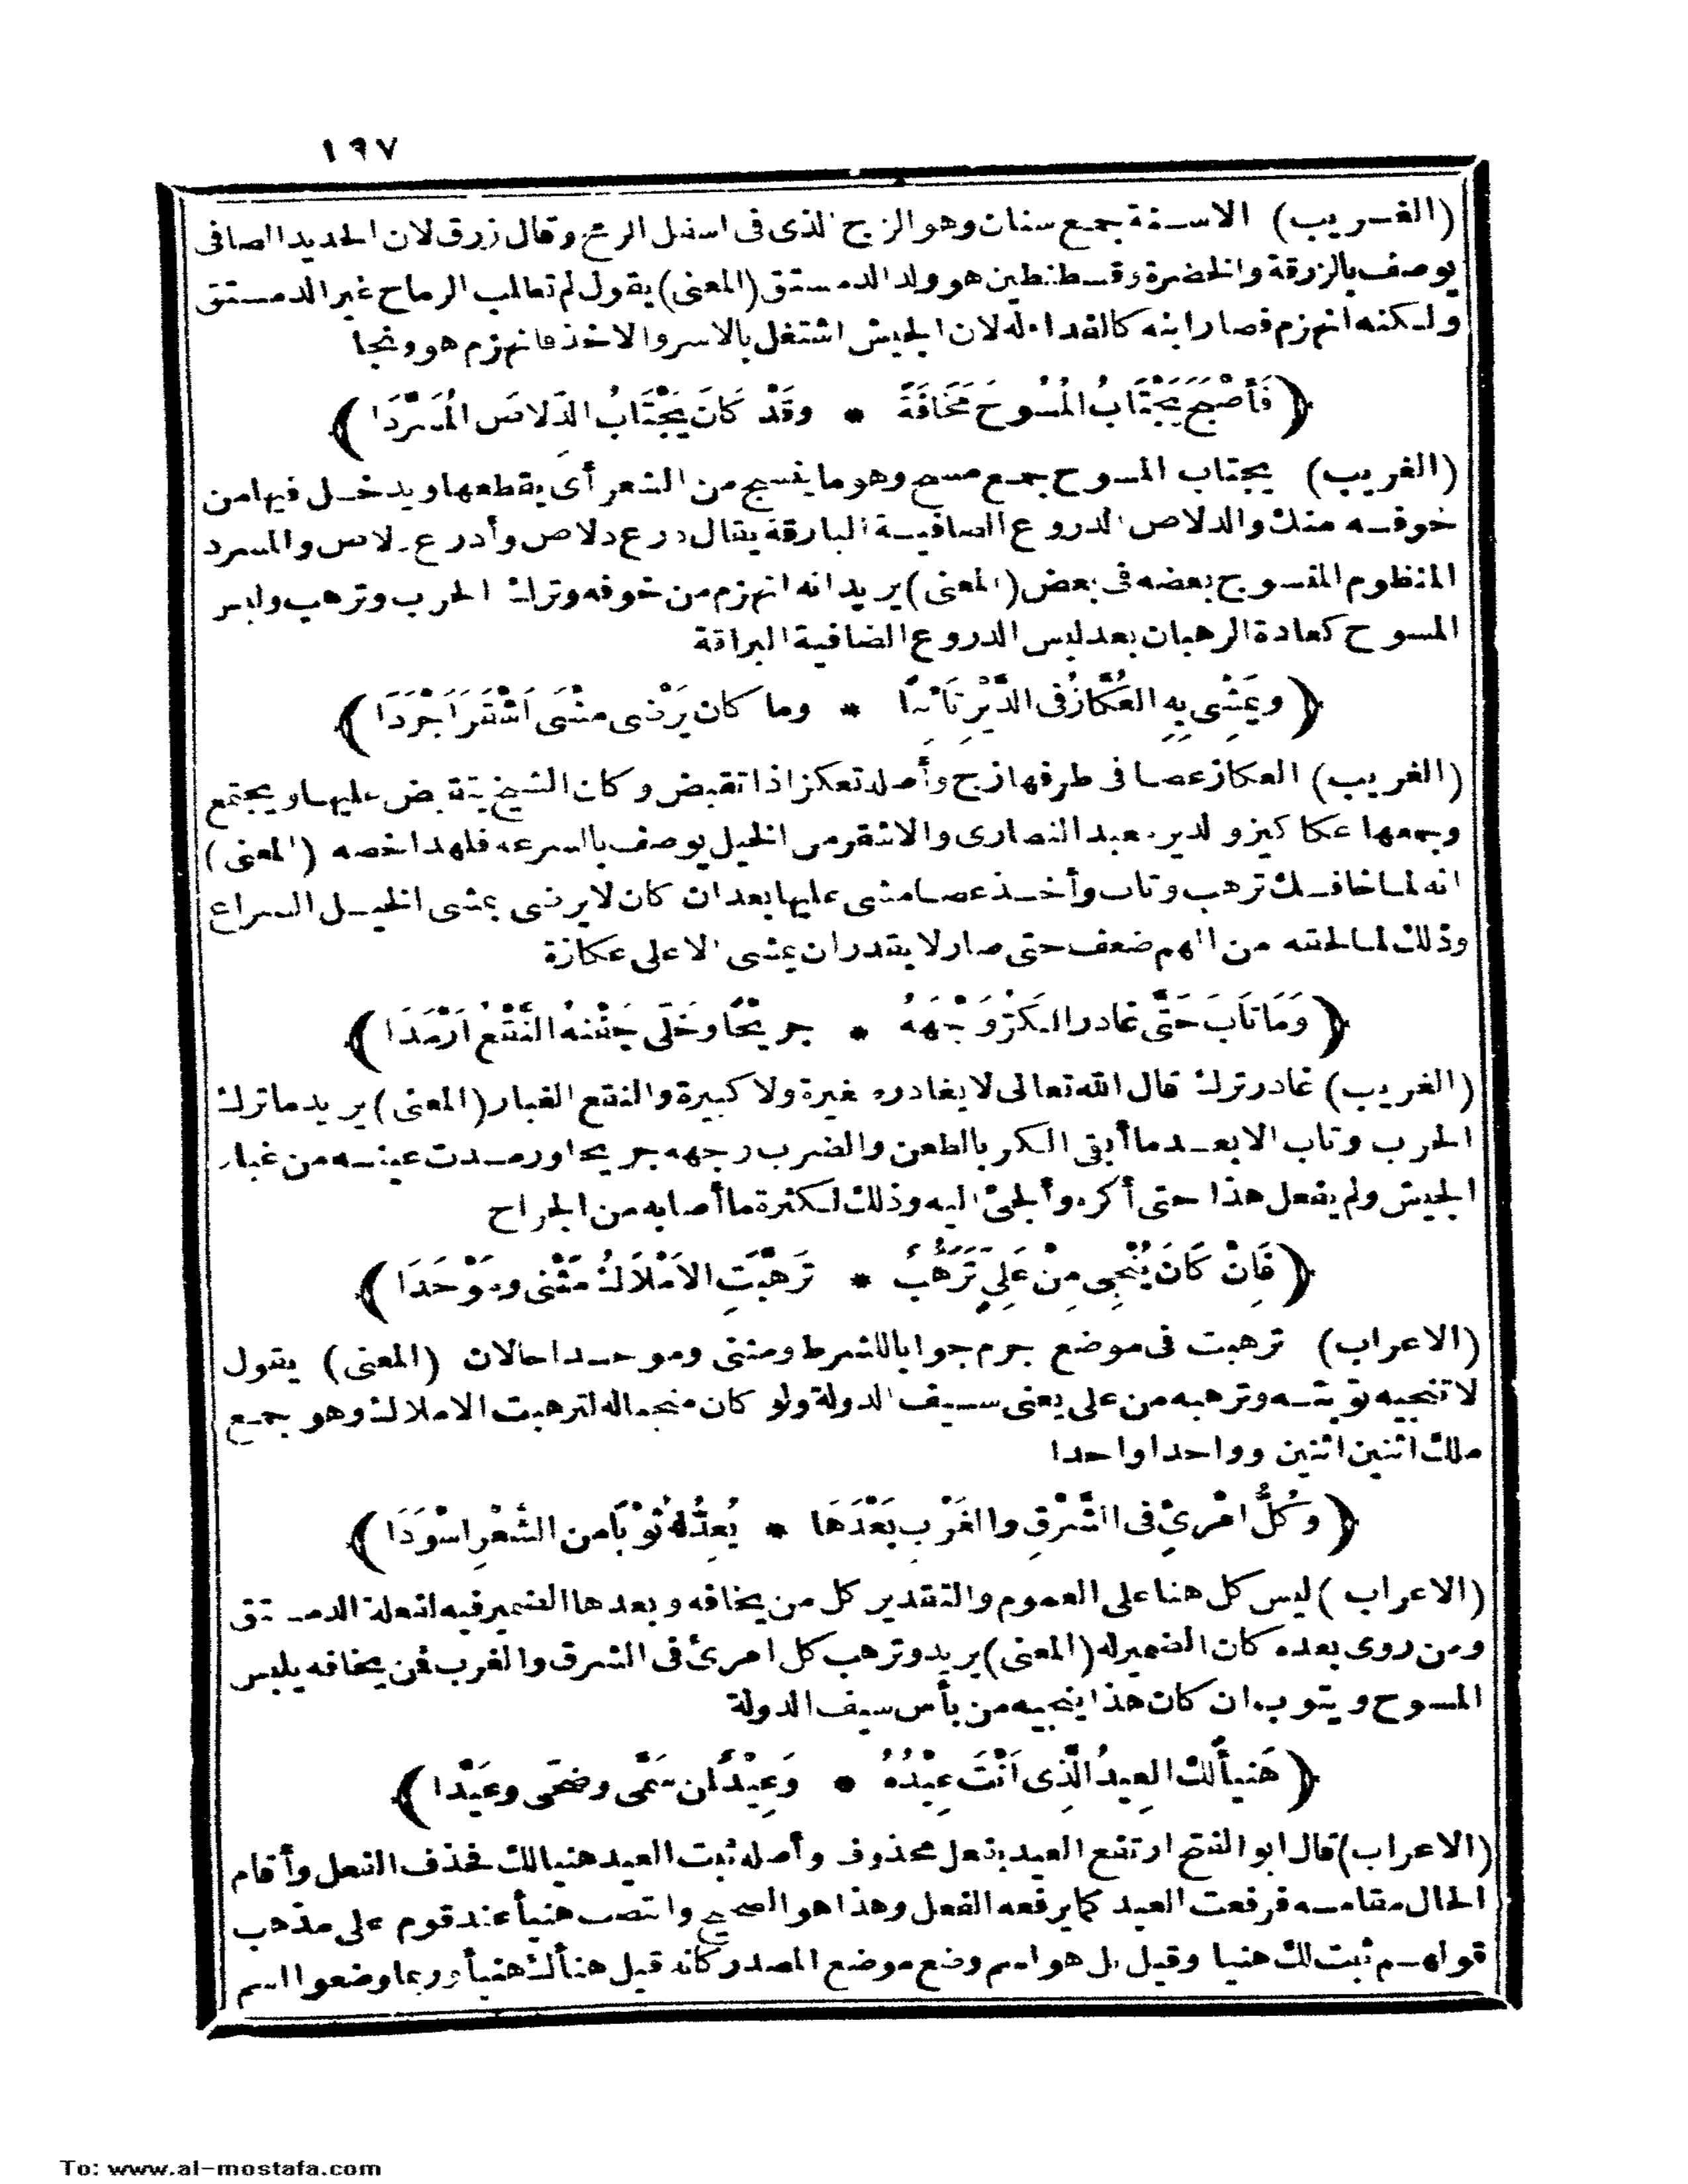 ١٩٧
(الغريب) الاسنة جمع سنان وهو الزج الذى فى اسفل الرمح وقال زرق لان الحديد الصافى
يوصف بالزرقة والخضرة وقسطنطين هو ولد الدمستق (المعنى) يقول لم تطلب الرماح غير الدمستق
ولكنه انهزم فصار ابنه كالفداء له لان الجيش اشتغل بالاسر والاخذ فانهزم هو ونجا
﴿فَأَصْبَحَ يَجْتَابُ الْمُسُوحَ مَخَافَةً * وقَدْ كَانَ يَجْتَابُ الدِّلَاصَ الْمُسَرَّدَا﴾
(الغريب) يجتاب المسوح جمع مسح وهو ما ينسج من الشعر أى يقطعها ويدخل فيها من
خوفه منك والدلاص الدروع الصافية البارقة يقال درع دلاص وأدرع دلاص والمسرد
المنظوم المنسوج بعضه فى بعض (المعنى) يريد انه انهزم من خوفه وترك الحرب وترهب ولبس
المسوح كعادة الرهبان بعد لبس الدروع الضافية البراقة
﴿ويَمْشِى بِهِ العُكَّازُ فِى الدَّيْرِ تَائِبًا * وما كان يَرْضَى مَشْىَ اَشْقَرَ اَجْرَدَا﴾
(الغريب) العكاز عصا فى طرفها زج وأصله تعكز اذا تقبض وكان الشيخ يتقبض عليها ويجتمع
وجمعها عكاكيز والدير معبد النصارى والاشقر من الخيل يوصف بالسرعه فلهذا خصه (المعنى)
انه لما خافك ترهب وتاب وأخذ عصا مشى عليها بعد ان كان لا يرضى بمشى الخيل السراع
وذلك لما لحقه من الهم ضعف حتى صار لا يقدر ان يمشى الا على عكازة
﴿وَمَا تَابَ حَتَّى غادر الكَرُّ وَجْهَهُ * جريْحًا وخَلَّى جَفْنَهُ النَّقْعُ اَرْمَدَا﴾
(الغريب) غادر ترك قال الله تعالى لا يغادر صغيرة ولا كبيرة والنقع الغبار (المعنى) يريد ما ترك
الحرب وتاب الا بعد ما أبقى الكر بالطعن والضرب وجهه جريحا ورمدت عينه من غبار
الجيش ولم يفعل هذا حتى أكره وألجئ اليه وذلك لكثرة ما أصابه من الجراح
﴿فَاِنْ كَانَ يُنْجِى مِنْ عَلِىٍّ تَرَهُّبٌ * تَرَهَّبَتِ الاَمْلَاكُ مَثْنى ومَوْحَدَا﴾
(الاعراب) ترهبت فى موضع جزم جوابا للشرط ومثنى وموحدا حالان (المعنى) يقول
لا تنجيه توبته وترهبه من على يعنى سيف الدولة ولو كان منجيا له لترهبت الاملاك وهو جمع
ملك اثنين اثنين وواحدا واحدا
﴿وَكُلُّ امْرِئٍ فى الشَّرْقِ والغَرْبِ بَعْدَهَا * يُعِدُّ لَهُ ثَوْبًا من الشَّعْرِ اسْوَدَا﴾
(الاعراب) ليس كل هنا على العموم والتقدير كل من يخافه وبعدها الضمير فيه لفعلة الدمستق
ومن روى بعده كان الضمير له (المعنى) يريد وترهب كل امرئ فى الشرق والغرب فمن يخافه يلبس
المسوح ويتوب ان كان هذا ينجيه من بأس سيف الدولة
﴿هَنيأً لك العِيدُ الَّذِى اَنْتَ عِيْدُهُ * وَعِيْدٌ لمن سَمَّى وضَحَّى وعَيَّدا﴾
(الاعراب) قال ابو الفتح ارتفع العيد بفعل محذوف وأصله ثبت العيد هنيا لك فحذف الفعل وأقام
الحال مقامه فرفعت العيد كما يرفعه الفعل وهذا هو الصحيح وانتصب هنيأ عند قوم على مذهب
قولهم ثبت لك هنيا وقيل بل هو اسم وضع موضع المصدر كأنه قيل هنأك هنيأ وربما وضعوا اسم
To: www.al-mostafa.com